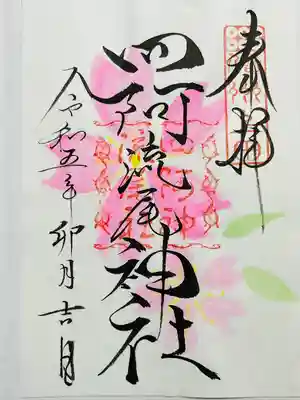 奉拝
四阿流尾神社
令和五年 卯月吉日